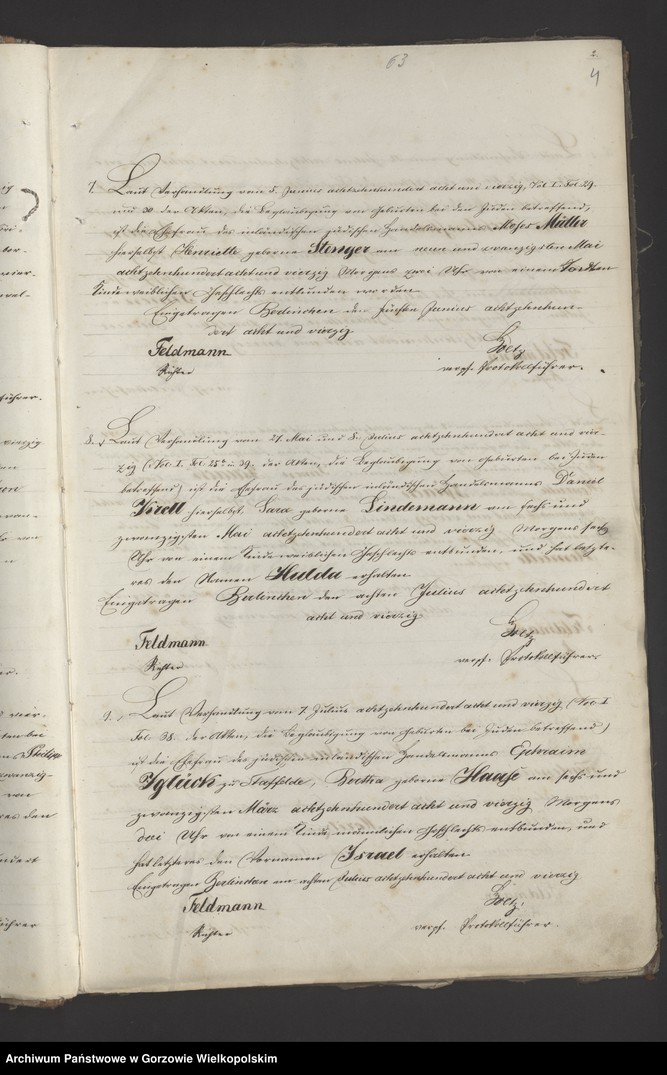 63
4
7. Laut Verhandlung vom 5. Junius achtzehnhundert acht und vierzig, Vol. I. Fol. 29.
und 30 der Akten, die Beglaubigung von Geburten bei den Juden betreffend,
ist die Ehefrau des inländischen jüdischen Handelsmanns Moses Müller
hierselbst Henriette geborne Stenger am neun und zwanzigsten Mai
achtzehnhundert acht und vierzig Morgens zwei Uhr von einem todten
Kinde weiblichen Geschlechts entbunden worden.
Eingetragen Berlinchen den fünften Junius achtzehnhun-
dert acht und vierzig
Feldmann Goetz
Richter verpf. Protokollführer.
8. Laut Verhandlung vom 27. Mai und 8. Julius achtzehnhundert acht und vier-
zig (Vol. I. Fol. 25 u 39. der Akten, die Beglaubigung von Geburten bei Juden
betreffend) ist die Ehefrau des jüdischen inländischen Handelsmanns Daniel
hierselbst, Sara geborne Lindemann am sechs und
zwanzigsten Mai achtzehnhundert acht und vierzig Morgens sechs
Uhr von einem Kinde weiblichen Geschlechts entbunden, und hat letzte-
res den Namen Hulda erhalten
Eingetragen Berlinchen den achten Julius achtzehnhundert
acht und vierzig
Feldmann Goetz
Richter verpf. Protokollführer
9. Laut Verhandlung vom 7. Julius achtzehnhundert acht und vierzig, (Vol I
Fol. 38. der Akten, die Beglaubigung von Geburten bei Juden betreffend)
ist die Ehefrau des jüdischen inländischen Handelsmanns Ephraim
Iglück zu Staffelde, Bertha geborne Haase am sechs und
zwanzigsten März achtzehnhundert acht und vierzig, Morgens
drei Uhr von einem Kinde männlichen Geschlechts entbunden, und
hat letzteres den Vornamen Israel erhalten
Eingetragen Berlinchen am achten Julius achtzehnhundert acht und vierzig
Feldmann Goetz.
Richter verpf. Protokollführer.
Archiwum Państwowe w Gorzowie Wielkopolskim